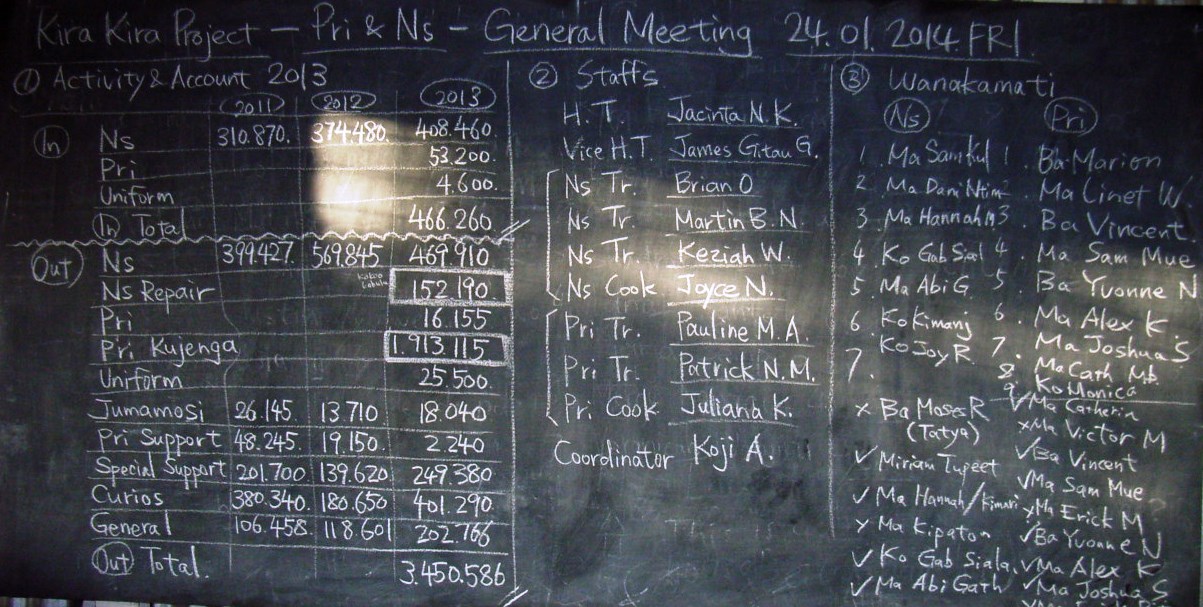 Kira Kira Project – Pri & Ns – General Meeting 24.01.2014.FRI.
① Activity & Account 2013
2011 2012 2013
In Ns 310.870. 374.480. 408.460
Pri 53.200.
Uniform 4.600.
In Total 466.260
Out Ns 399.427. 569.845 469.910
Ns Repair 152.190.
Pri 16.155
Pri Kujenga 1.913.115
Uniform 25.500.
Jumamosi 26.145. 13.710 18.040
Pri Support 48.245. 19.150. 2.240
Special Support 201.700 139.620 249.380
Curios 380.340 180.650 401.290
General 106.458. 118.601 202.766
Out Total. 3.450.586
② Staffs
H.T. Jacinta N.K.
Vice H.T. James Gitau G.
Ns Tr. Brian O
Ns Tr. Martin B.N.
Ns Tr. Keziah W.
Ns Cook Joyce N.
Pri Tr. Pauline M.A
Pri Tr. Patrick N.M.
Pri Cook Juliana K.
Coordinator Koji A.
③ Wanakamati
Ns
1. Ma Samkul
2. Ma Dani Ntim
3. Ma Hannah
4. Ko Gab Sial
5. Ma Abi G.
6. Ko Kimanj
7. Ko Joy R.
x Ba Moses R
(Tatya)
✓ Miriam Tupeet
✓ Ma Hannah/Kimari
x Ma Kipaton
✓ Ko Gab Siala.
✓ Ma Abi Gath
Pri
1. Ba Marion
2. Ma Linet W.
3. Ba Vincent.
4. Ma Sam Mue
5. Ba Yvonne N
6. Ma Alex K.
7. Ma Joshua S
8. Ma Cath Mb.
9. Ko Monica
✓ Ma Catherin
x Ma Victor M
✓ Ba Vincent
✓ Ma Sam Mue
x Ma Erick M
✓ Ba Yvonne N
✓ Ma Alex K
✓ Ma Joshua S